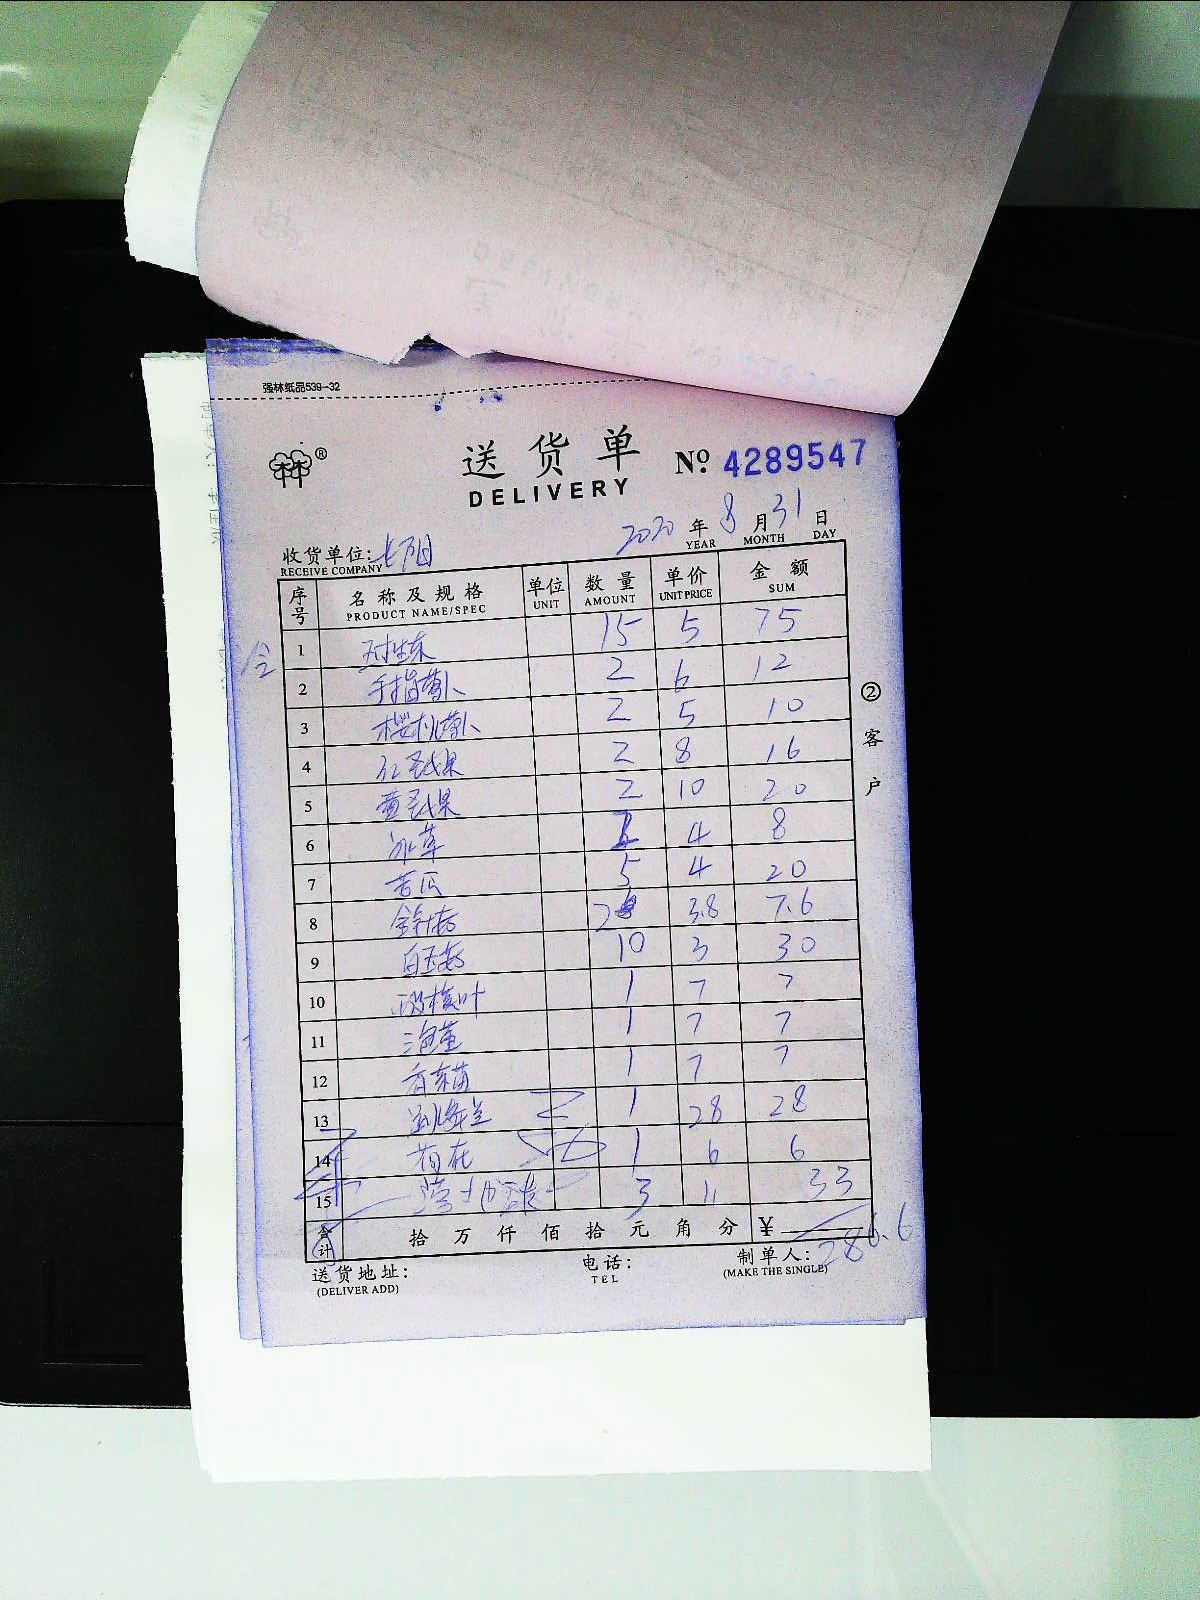 强林纸品539-32
林林®
送货单 Nº 4289547
DELIVERY
2020年8月31日
YEAR MONTH DAY
收货单位:
RECEIVE COMPANY
序号 名称及规格 单位 数量 单价 金额
PRODUCT NAME/SPEC UNIT AMOUNT UNIT PRICE SUM
1 对生菜 15 5 75
2 手指萝卜 2 6 12
3 樱桃萝卜 2 5 10
4 红圣女果 2 8 16
5 黄圣女果 2 10 20
6 冰草 2 4 8
7 苦瓜 5 4 20
8 金针菇 2 3.8 7.6
9 白玉菇 10 3 30
10 1 7 7
11 1 7 7
12 香菜苗 1 7 7
13 1 28 28
14 1 6 6
15 3 11 33
合计 拾 万 仟 佰 拾 元 角 分 ¥ 286.6
送货地址: 电话: 制单人:
(DELIVER ADD) TEL (MAKE THE SINGLE)
②客户